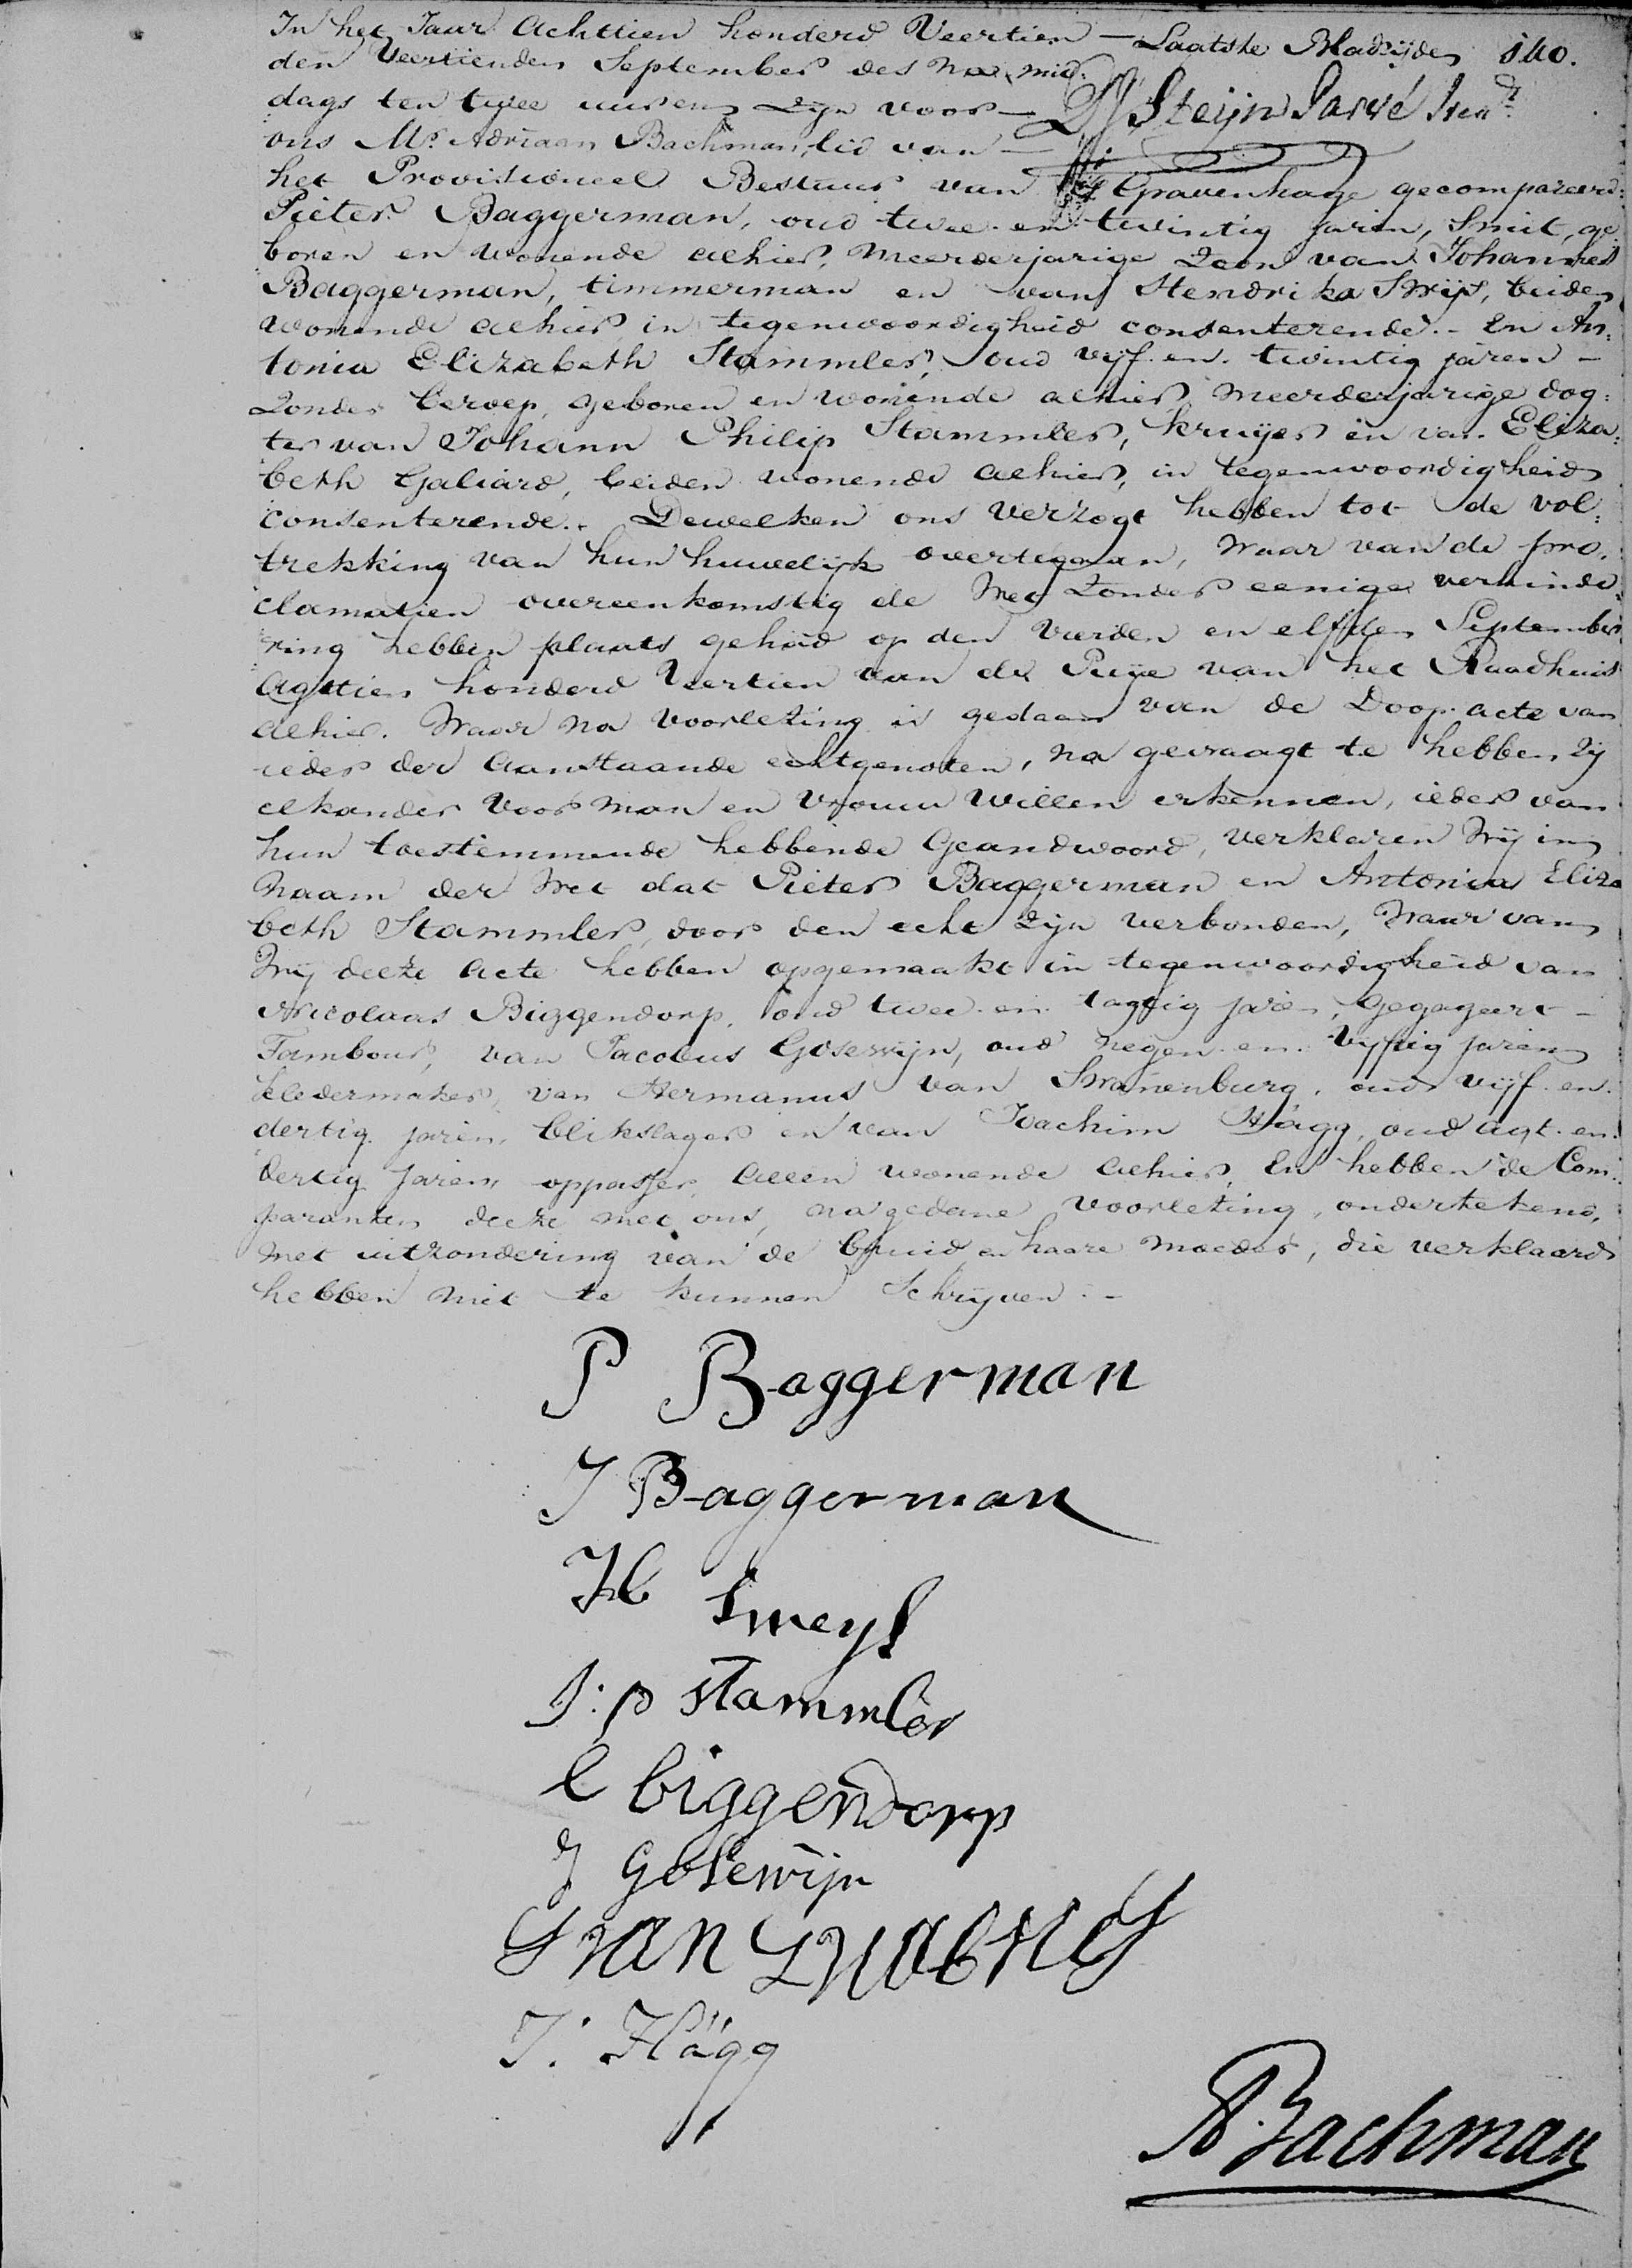 In het Jaar Achttien honderd Veertien – Laatste Bladzijde 140.
den Veertienden September des na mid:
dags ten twee uuren zijn voor – D J Steijn Parvé
ons Mr. Adriaan Bachman, lid van –
het Provisioneel Bestuur van 's Gravenhage gecompareerd:
Pieter Baggerman, oud twee en twintig jaren, Smit, ge
boren en wonende alhier, meerderjarige Zoon van Johannes
Baggerman, timmerman en van Hendrika Swijs, beiden
wonende alhier in tegenwoordigheid consenterende. – En An:
tonia Elizabeth Stammler, oud vijf en twintig jaren –
zonder beroep, geboren en wonende alhier, meerderjarige dog:
ter van Johann Philip Stammler, kruijer en van Eliza:
beth Galiard, beiden wonende alhier, in tegenwoordigheid
consenterende. Dewelken ons verzogt hebben tot de vol:
trekking van hun huwelijk overtegaan, waar van de pro.
clamatien overeenkomstig de Wet zonder eenige verhinde:
ring hebben plaats gehad op den vierden en elfden September
Agttien honderd Veertien aan de Puije van het Raadhuis
alhier. Waar na voorlezing is gedaan van de Doop acte van
ieder der Aanstaande echtgenoten, na gevraagt te hebben zij
elkander voor man en vrouw willen erkennen, ieder van
hun toestemmende hebbende Geandwoord, verklaren Wij in
naam der Wet dat Pieter Baggerman en Antonia Eliza
beth Stammler, door den echt zijn verbonden, waar van
Wij deeze Acte hebben opgemaakt in tegenwoordigheid van
Nicolaas Biggendorp, oud twee en tagtig jaren, Gegageert –
Tambour, van Jacobus Gosewijn, oud negen en vijftig jaren
kledermaker, van Hermanus van Swanenburg, oud vijf en
dertig jaren, blikslager en van Joachim Hägg, oud agt en
dertig jaren, oppasser, allen wonende alhier. En hebben de Com:
paranten deeze met ons, na gedane voorlezing, ondertekend,
met uitzondering van de bruid en haare moeder, die verklaard
hebben niet te kunnen Schrijven. –
P Baggerman
J Baggerman
H Sweys
J: p Stammler
C biggendorp
J Gosewijn
J: Hägg
A Bachman